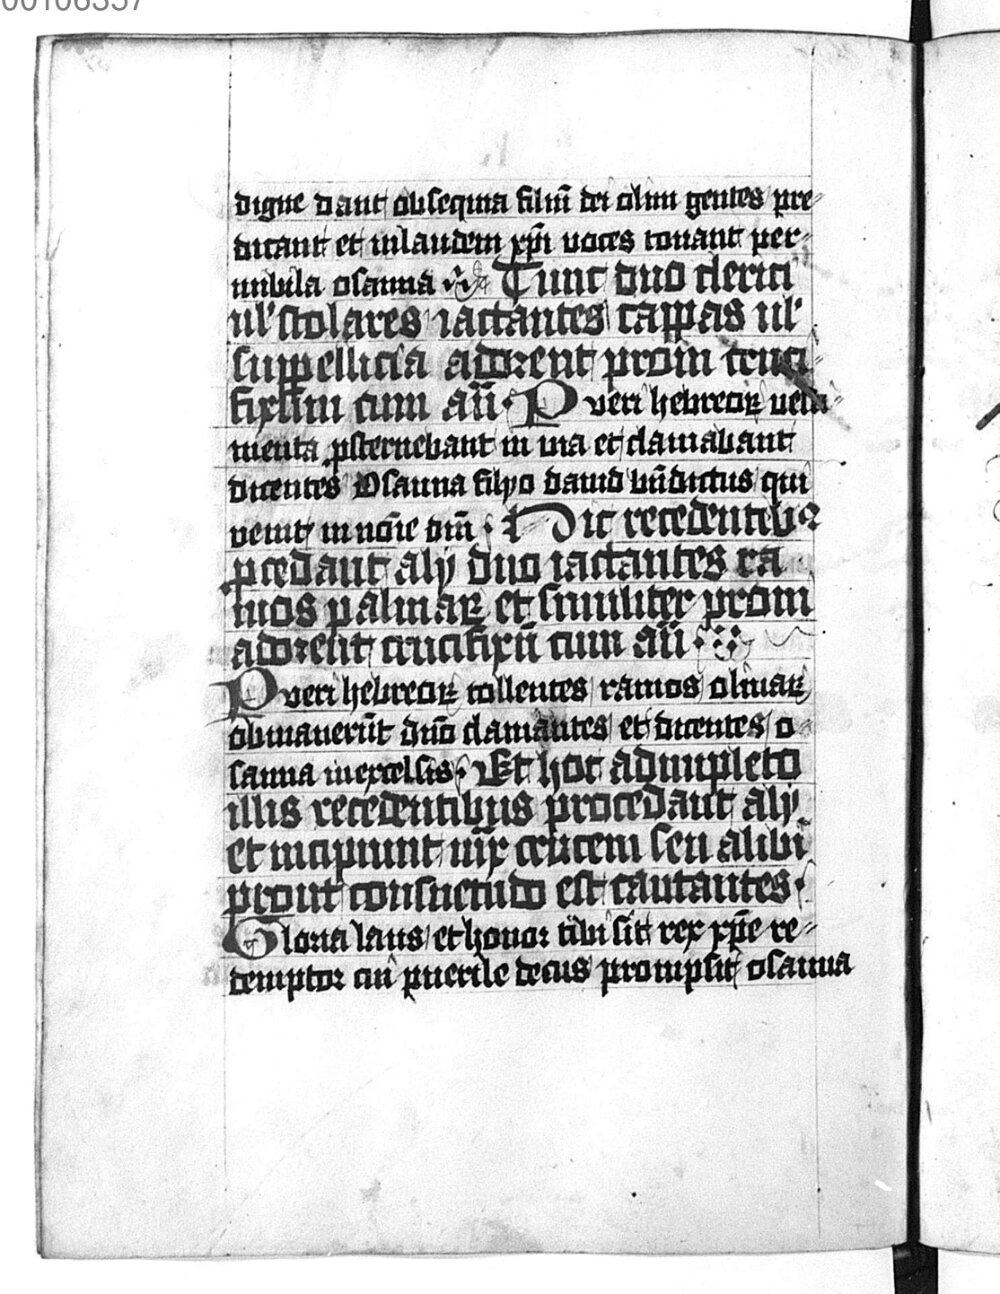 00106357
digne dant obsequia filiū dei olim gentes pre-
dicant et inlaudem xp̄i voces tonant per-
nubila osanna Tunc duo clerici
ul' scolares iactantes cappas ul'
suppellicia adorent prom̄ cruci-
fixum cum an̄ Pueri hebreoꝝ vesti-
menta ꝓsternebant in via et clamabant
dicentes Osanna filyo dauid bn̄dictus qui
venit in noīe dn̄i Hic recedentibus
p̄cedant alij duo iactantes ra
mos palmaꝝ et similiter prom̄
adorent crucifixū cum an̄
Pueri hebreoꝝ tollentes ramos oliuaꝝ
obuiauerūt dn̄o clamantes et dicentes o
sanna inexcelsis Et hoc adimpleto
illis recedentibus procedant alij
et incipiunt iux̄ crucem seu alibi
prout consuetudo est cantantes
Gloria laus et honor tibi sit rex xp̄e re-
demptor cui puerile decus prompsit osanna